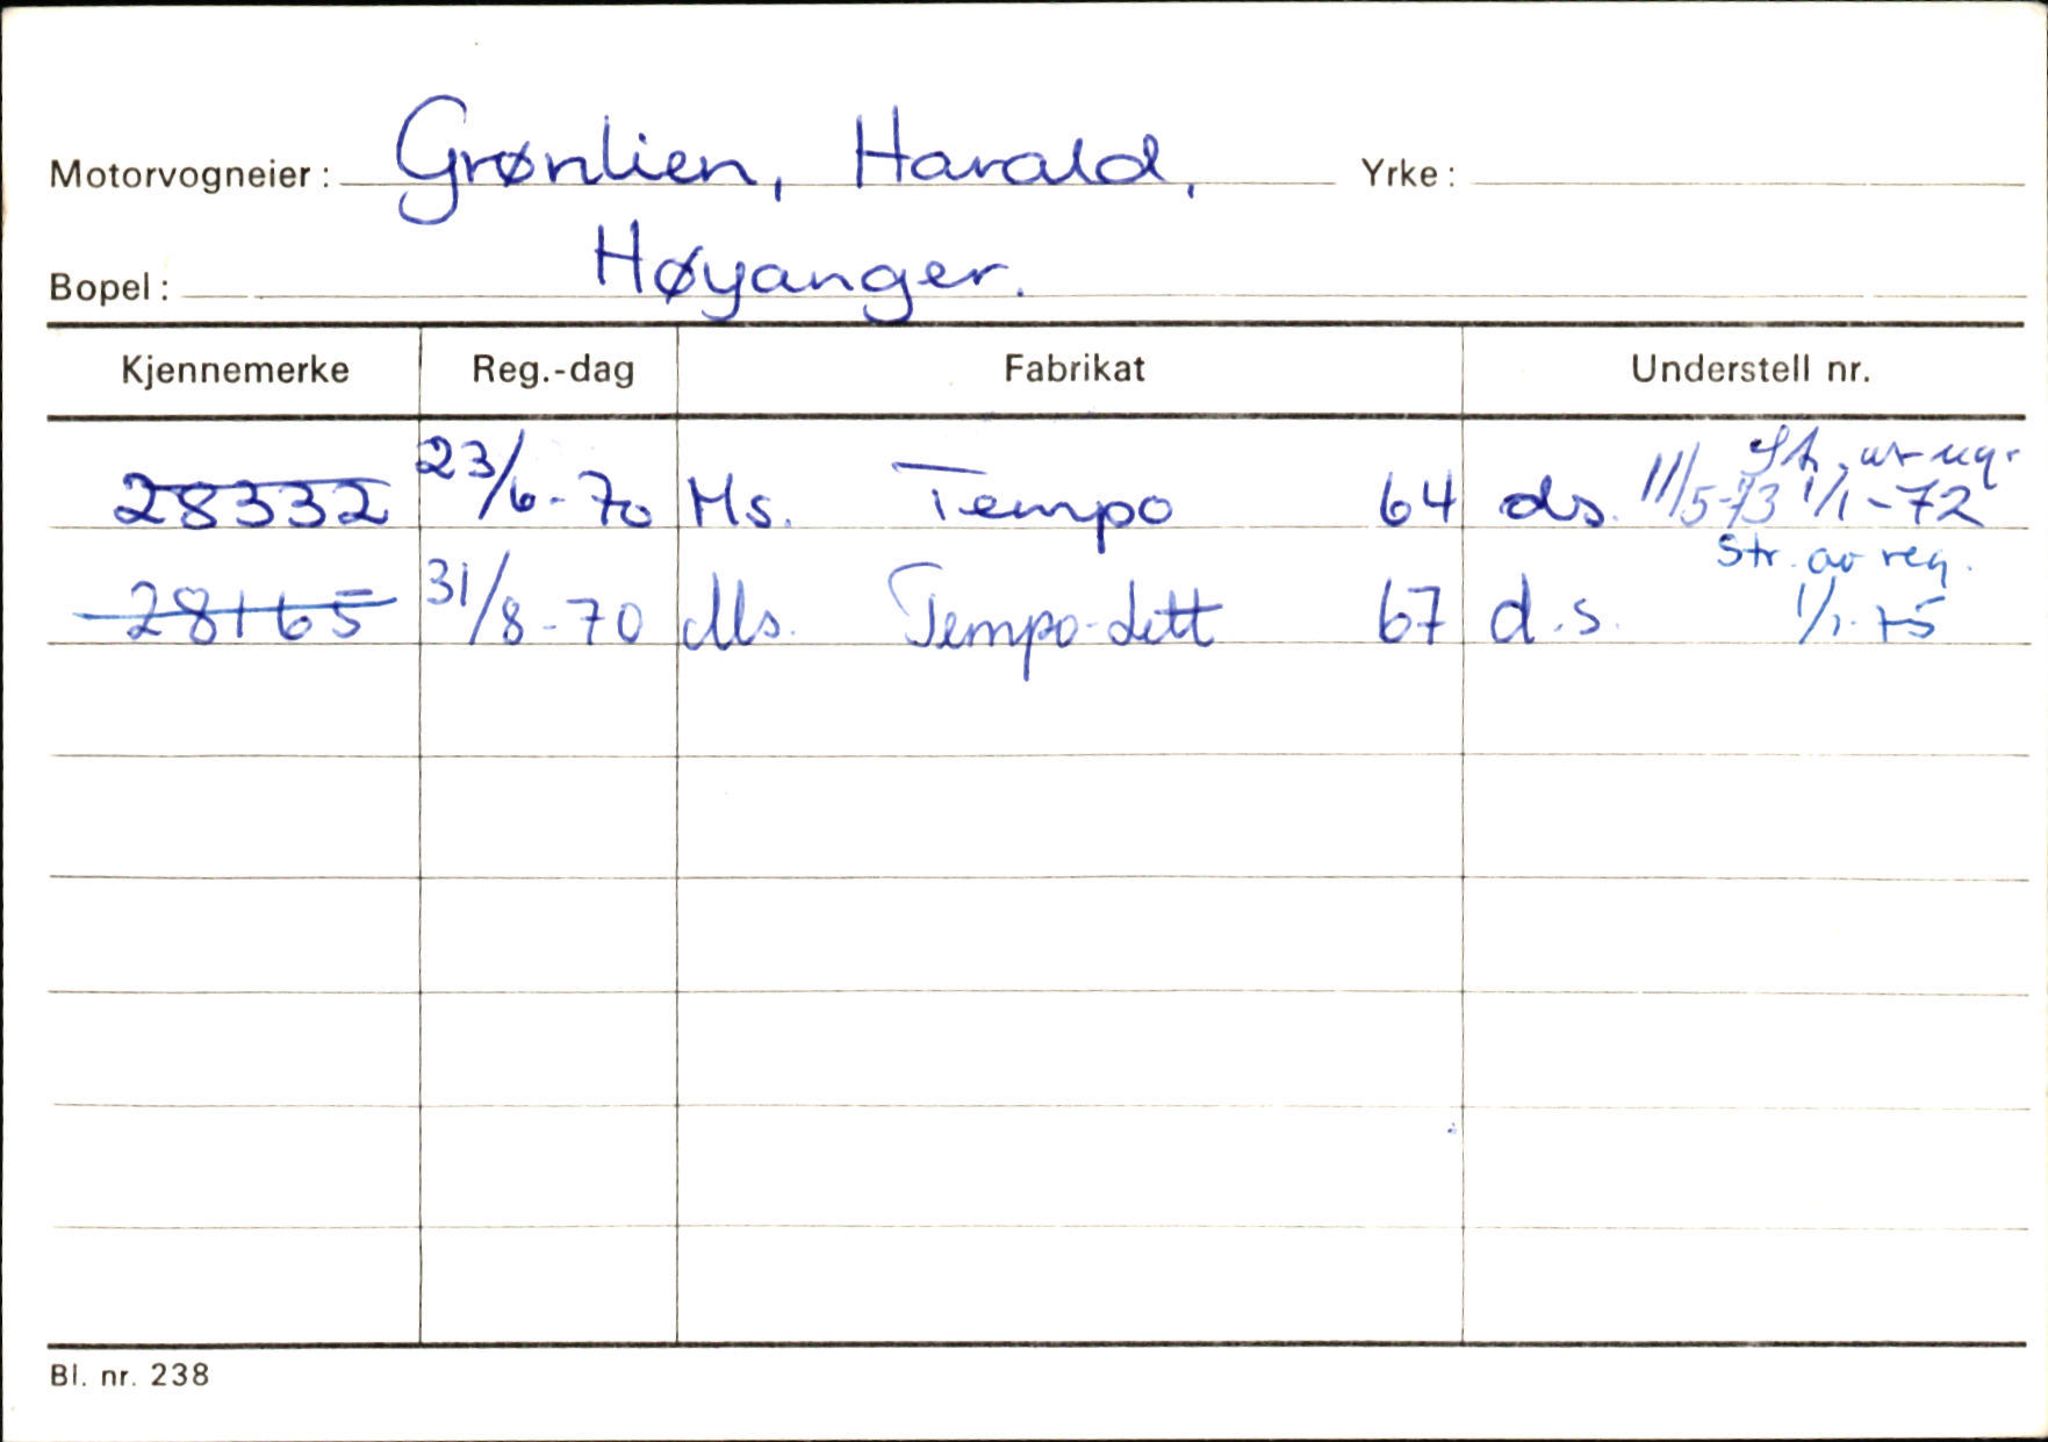 Motorvogneier: Grønlien, Harald, Yrke:
Bopel: Høyanger.
Kjennemerke Reg.-dag Fabrikat Understell nr.
Str. av reg.
28332 23/6-70 Ms. Tempo 64 ds. 11/5-73 1/1-72
Str. av reg.
28165 31/8-70 Ms. Tempo-Lett 67 d.s. 1/1-75
Bl. nr. 238